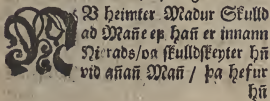 NV heimter Madur Skulld
ad Mañe er hañ er innann
Nierads/va skulldskeyter hñ
vid añañ Mañ / þa hefur
hñ